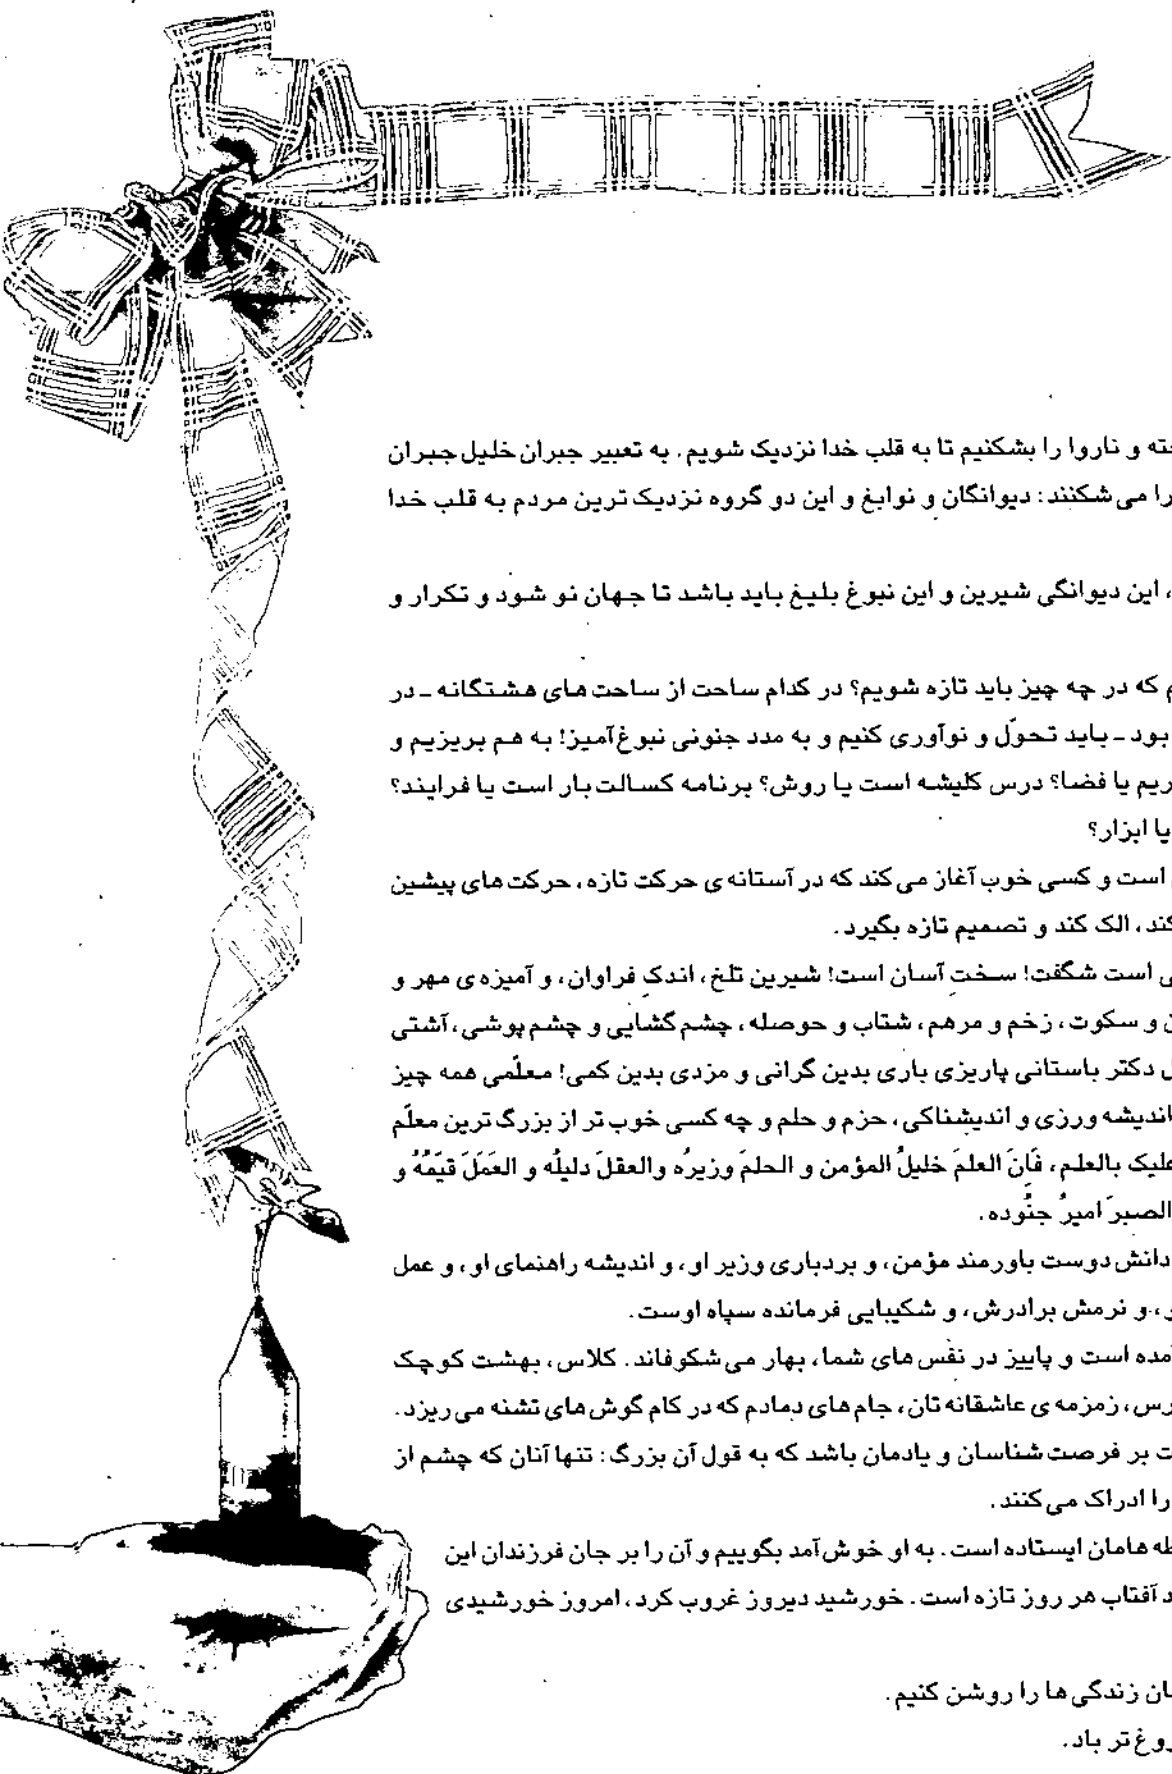 و ناروا را بشکنیم تا به قلب خدا نزدیک شویم. به تعبیر جبران خلیل جبران
را می شکنند: دیوانگان و نوابغ و این دو گروه نزدیک ترین مردم به قلب خدا
، این دیوانگی شیرین و این نبوغ بلیغ باید باشد تا جهان نو شود و تکرار و
که در چه چیز باید تازه شویم؟ در کدام ساحت از ساحت های هشتگانه ـ در
بود ـ باید تحوّل و نوآوری کنیم و به مدد جنونی نبوغ آمیز! به هم بریزیم و
یا فضا؟ درس کلیشه است یا روش؟ برنامه کسالت بار است یا فرایند؟
یا ابزار؟
است و کسی خوب آغاز می کند که در آستانه ی حرکت تازه، حرکت های پیشین
کند، الک کند و تصمیم تازه بگیرد.
است شگفت! سختِ آسان است! شیرین تلخ، اندکِ فراوان، و آمیزه ی مهر و
و سکوت، زخم و مرهم، شتاب و حوصله، چشم گشایی و چشم پوشی، آشتی
دکتر باستانی پاریزی باری بدین گرانی و مزدی بدین کمی! معلّمی همه چیز
اندیشه ورزی و اندیشناکی، حزم و حلم و چه کسی خوب تر از بزرگ ترین معلّم
علیک بالعلم، فَاِنَ العلمَ خلیلُ المؤمن و الحلمَ وزیرُه والعقلَ دلیلُه و العَمَلَ قیّمُهُ و
الصبرَ امیرُ جنُوده.
دانش دوست باورمند مؤمن، و بردباری وزیر او، و اندیشه راهنمای او، و عمل
، و نرمش برادرش، و شکیبایی فرمانده سپاه اوست.
آمده است و پاییز در نفَس های شما، بهار می شکوفاند. کلاس، بهشت کوچک
، زمزمه ی عاشقانه تان، جام های دمادم که در کام گوش های تشنه می ریزد.
بر فرصت شناسان و یادمان باشد که به قول آن بزرگ: تنها آنان که چشم از
را ادراک می کنند.
هامان ایستاده است. به او خوش آمد بگوییم و آن را بر جان فرزندان این
آفتاب هر روز تازه است. خورشید دیروز غروب کرد، امروز خورشیدی
زندگی ها را روشن کنیم.
تر باد.